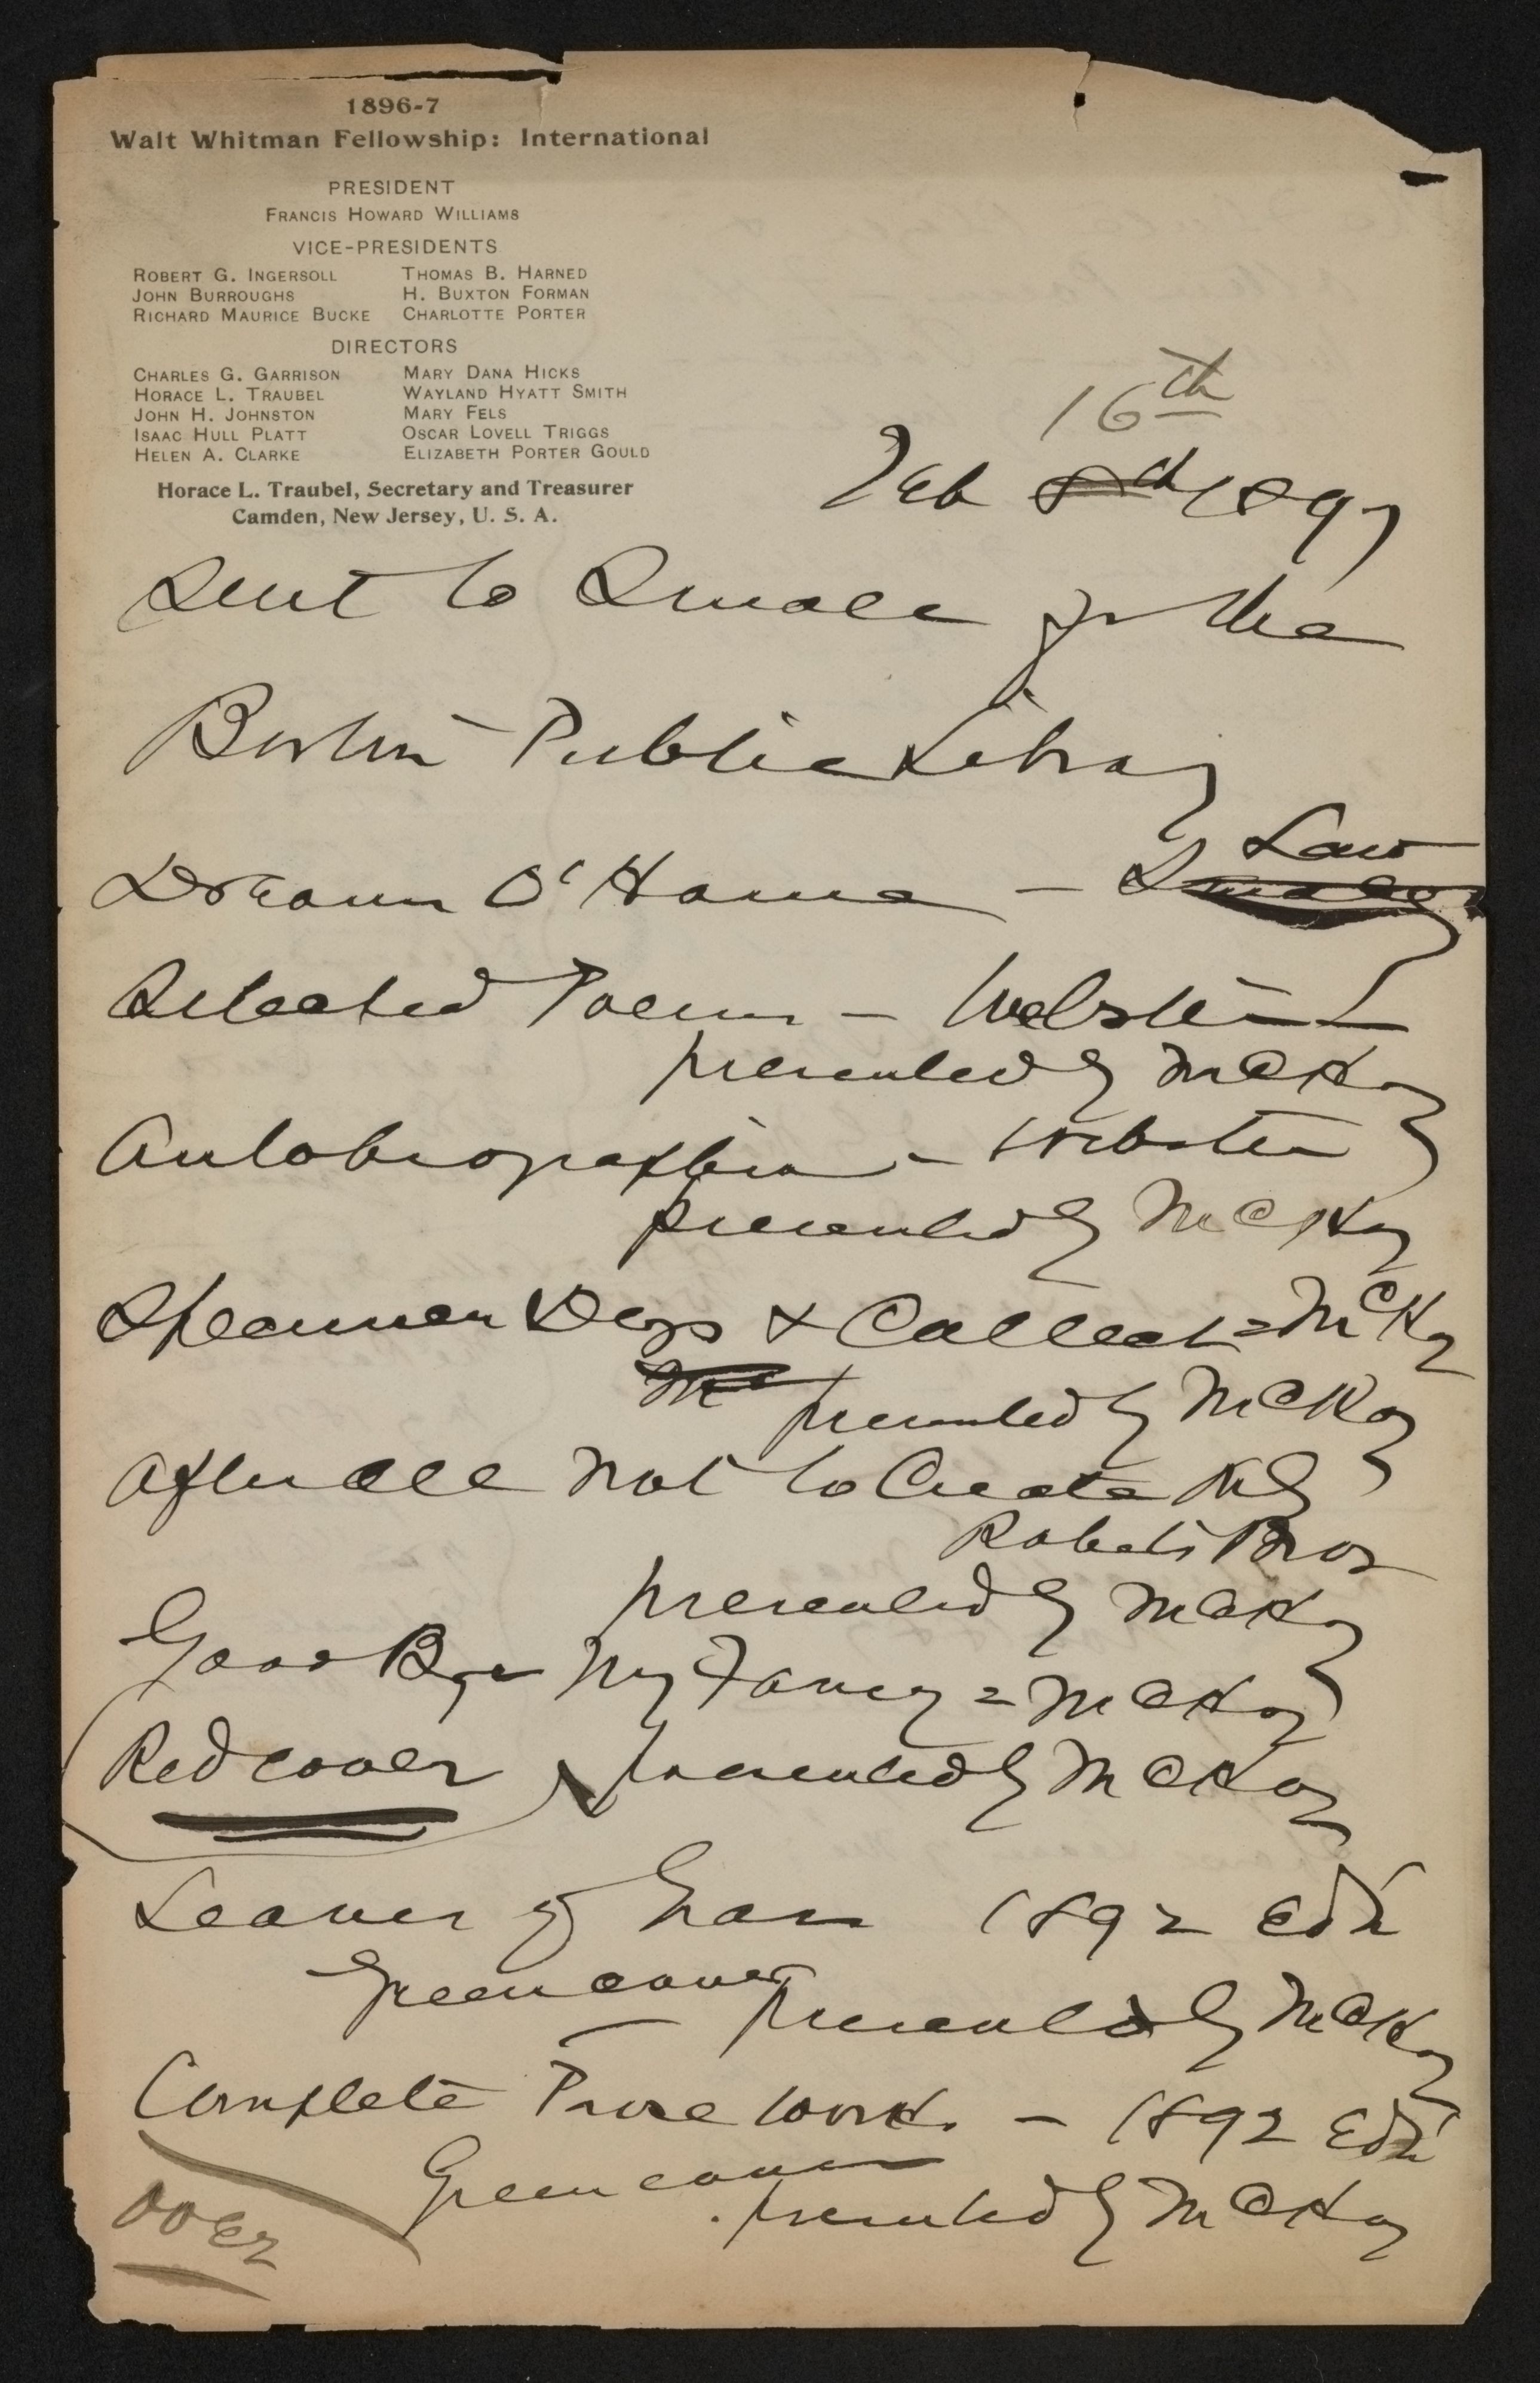 1896-7
Walt Whitman Fellowship: International
PRESIDENT
FRANCIS HOWARD WILLIAMS
VICE-PRESIDENTS
ROBERT G. INGERSOLL THOMAS B. HARNED
JOHN BURROUGHS H. BUXTON FORMAN
RICHARD MAURICE BUCKE CHARLOTTE PORTER
DIRECTORS
CHARLES G. GARRISON MARY DANA HICKS
HORACE L. TRAUBEL WAYLAND HYATT SMITH
JOHN H. JOHNSTON MARY FELS
ISAAC HULL PLATT OSCAR LOVELL TRIGGS
HELEN A. CLARKE ELIZABETH PORTER GOULD
Horace L. Traubel, Secretary and Treasurer
Camden, New Jersey, U. S. A.
16th
Feb 8th 1897
Sent to Small for the
Boston Public Library
Law
O'
Selected Poems - Webster
presented by McKay
Autobiographia - Webster
presented by McKay
Specimen Days & Collect = McKay
Mc presented by McKay
After all not to Create only
Roberts Bros
presented by McKay
Good Bye My Fancy = McKay
Red cover presented by McKay
Leaves of Grass 1892 Edn
Green cover presented by McKay
Complete Prose works - 1892 Edn
Green cover
presented by McKay
over